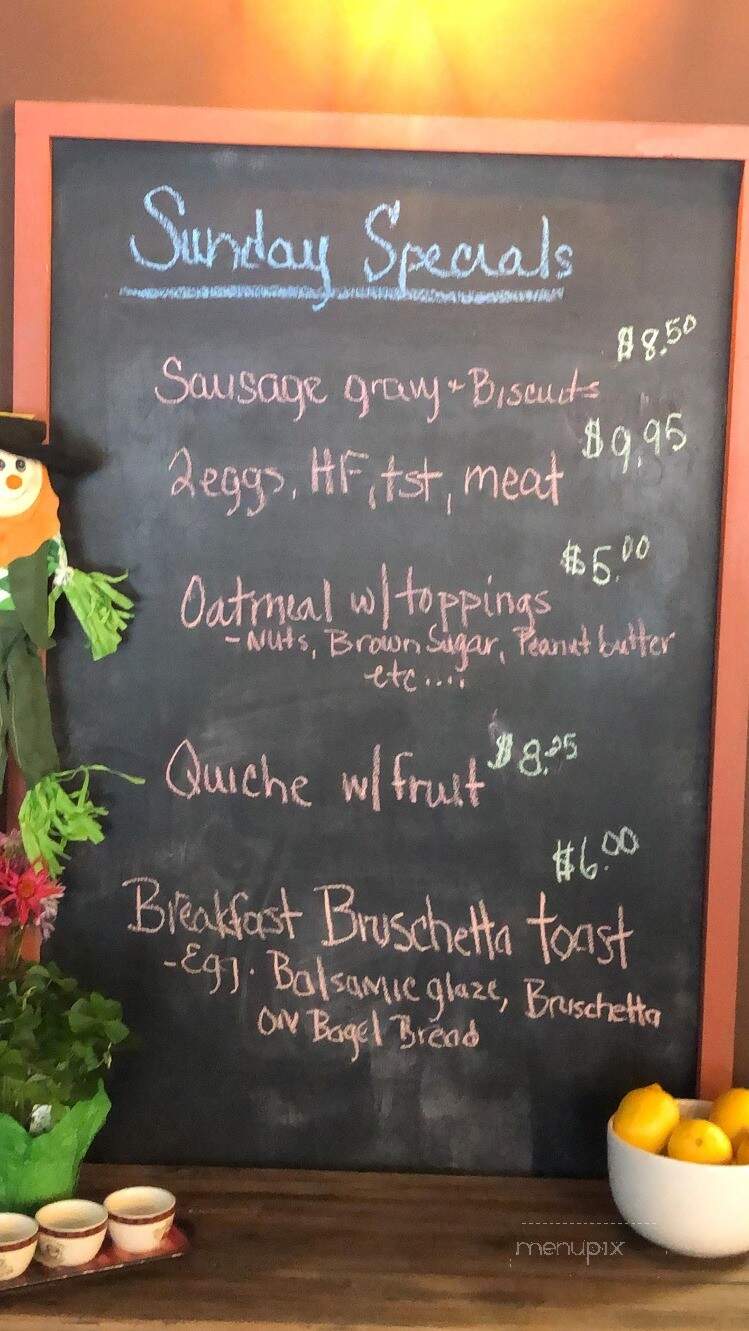 Sunday Specials
$8.50
Sausage gravy + Biscuits
$9.95
2eggs, HF, tst, meat
$5.00
Oatmeal w/ toppings
- Nuts, Brown Sugar, Peanut butter
etc....
Quiche w/ fruit $8.25
$6.00
Breakfast Bruschetta toast
- Egg. Balsamic glaze, Bruschetta
ON Bagel Bread
menupix